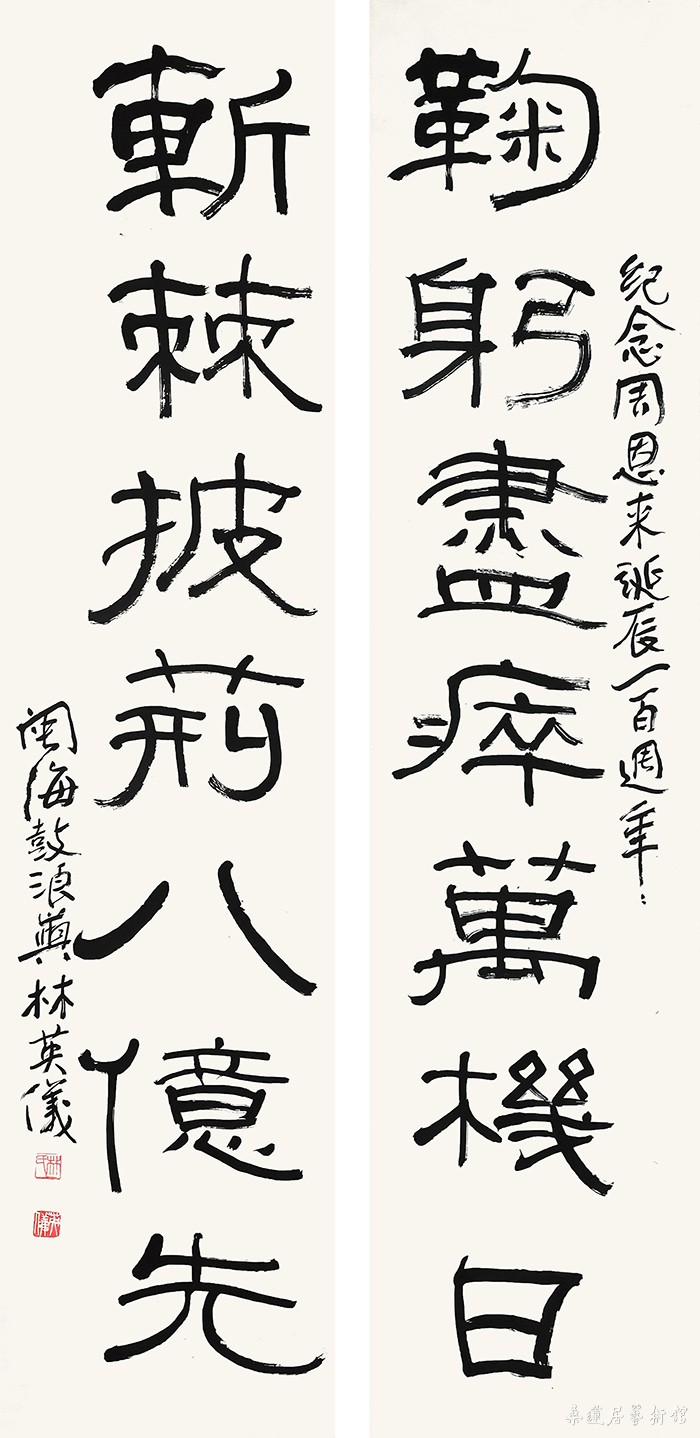 紀念周恩来誕辰一百週年
鞠躬盡瘁萬機日
斬棘披荊八億先
閩海鼓浪嶼林英儀
林氏
英儀
桑蓮居藝術館